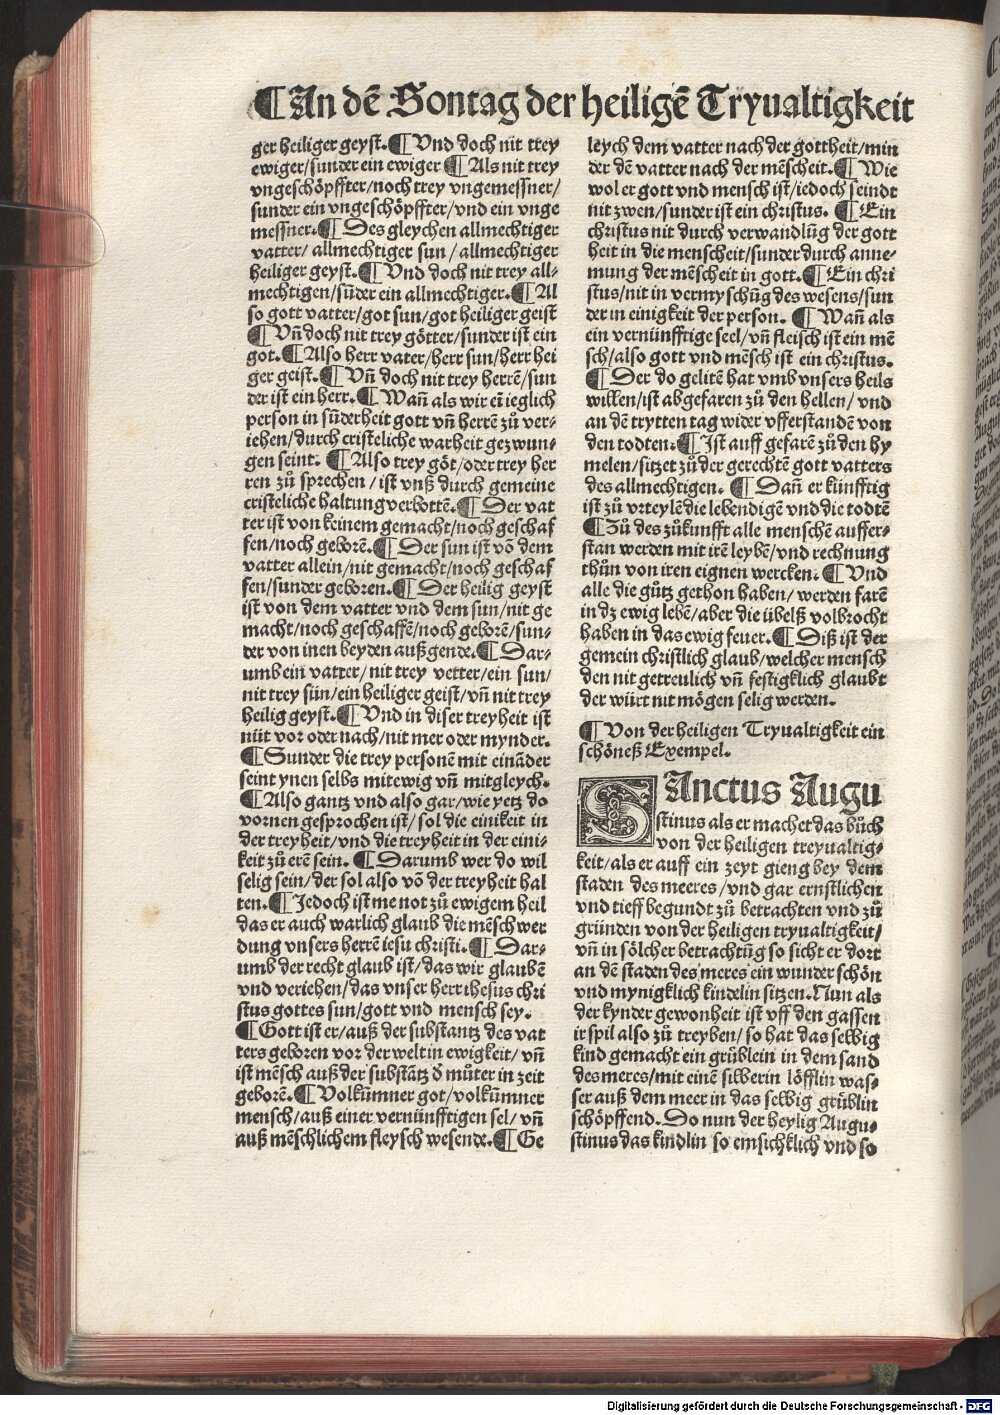 ¶An dẽ Sontag der heiligẽ Tryualtigkeit
ger heiliger geyst.¶Vnd doch nit trey
ewiger/sunder ein ewiger ¶Als nit trey
vngeschöpffter/noch trey vngemessner/
sunder ein vngeschöpffter/vnd ein vnge
messner.¶Des gleychen allmechtiger
vatter/ allmechtiger sun / allmechtiger
heiliger geyst.¶Vnd doch nit trey all⸗
mechtigen/sũder ein allmechtiger.¶Al
so gott vatter/got sun/got heiliger geist
¶Vñ doch nit trey götter/sunder ist ein
got.¶Also herr vater/herr sun/herr hei
ger geist.¶Vñ doch nit trey herrẽ/sun
der ist ein herr.¶Wañ als wir eĩ ieglich
person in sũderheit gott vñ herrẽ zů ver⸗
iehen/durch cristeliche warheit gezwun⸗
gen seint. ¶Also trey göt/oder trey her
ren zů sprechen / ist vnß durch gemeine
cristeliche haltung verbottẽ.¶Der vat
ter ist von keinem gemacht/noch geschaf
fen/noch geborẽ.¶Der sun ist võ dem
vatter allein/nit gemacht/noch geschaf
fen/sunder geboren.¶Der heilig geyst
ist von dem vatter vnd dem sun/nit ge
macht/noch geschaffẽ/noch geborẽ/sun⸗
der von inen beyden außgende.¶Dar⸗
umb ein vatter/nit trey vetter/ein sun/
nit trey sün/ein heiliger geist/vñ nit trey
heilig geyst.¶Vnd in diser treyheit ist
nüt vor oder nach/nit mer oder mynder.
¶Sunder die trey personẽ mit einãder
seint ynen selbs mitewig vñ mitgleych.
¶Also gantz vnd also gar/wie yetz do
vornen gesprochen ist/ sol die einikeit in
der treyheit/vnd die treyheit in der eini⸗
keit zů erẽ sein. ¶Darumb wer do wil
selig sein/der sol also võ der treyheit hal
ten.¶Jedoch ist me not zů ewigem heil
das er auch warlich glaub die mẽsch wer
dung vnsers herrẽ iesu christi.¶Dar⸗
umb der recht glaub ist/das wir glaubẽ
vnd veriehen/das vnser herr ihesus chri
stus gottes sun/gott vnd mensch sey.
¶Gott ist er/auß der substantz des vat
ters geboren vor der welt in ewigkeit/ vñ
ist mẽsch auß der substãtz d̕ můter in zeit
geborẽ.¶Volkũmner got/volkũmner
mensch/auß einer vernünfftigen sel/ vñ
auß mẽschlichem fleysch wesende.¶Ge
leych dem vatter nach der gottheit/min
der dẽ vatter nach der mẽscheit.¶Wie
wol er gott vnd mensch ist/iedoch seindt
nit zwen/sunder ist ein christus. ¶Ein
christus nit durch verwandlũg der gott
heit in die menscheit/sunder durch anne⸗
mung der mẽscheit in gott.¶Ein chri
stus/nit in vermyschũg des wesens/sun
der in einigkeit der person. ¶Wañ als
ein vernünfftige seel/vñ fleisch ist ein mẽ
sch/also gott vnd mẽsch ist ein christus.
¶Der do gelitẽ hat vmb vnsers heils
willen/ist abgefaren zů den hellen/ vnd
an dẽ trytten tag wider vfferstandẽ von
den todten.¶Ist auff gefarẽ zů den hy
melen/sitzet zů der gerechtẽ gott vatters
des allmechtigen. ¶Dañ er künfftig
ist zů vrteylẽ die lebendigẽ vnd die todtẽ
¶Zů des zůkunfft alle menschẽ auffer⸗
stan werden mit irẽ leybẽ/vnd rechnung
thůn von iren eignen wercken.¶Vnd
alle die gůtz gethon haben/ werden farẽ
in dz ewig lebẽ/aber die übelß volbrocht
haben in das ewig feuer.¶Diß ist der
gemein christlich glaub/welcher mensch
den nit getreulich vñ festigklich glaubt
der würt nit mögen selig werden.
¶Von der heiligen Tryualtigkeit ein
schöneß Exempel.
SAnctus Augu
stinus als er machet das bůch
von der heiligen treyualtig⸗
keit/als er auff ein zeyt gieng bey dem
staden des meeres/vnd gar ernstlichen
vnd tieff begundt zů betrachten vnd zů
gründen von der heiligen tryualtigkeit/
vñ in sölcher betrachtũg so sicht er dort
an dẽ staden des meres ein wunder schön
vnd mynigklich kindelin sitzen.Nun als
der kynder gewonheit ist vff den gassen
ir spil also zů treyben/ so hat das selbig
kind gemacht ein grüblein in dem sand
des meres/mit einẽ silberin löfflin was⸗
ser auß dem meer in das selbig grüblin
schöpffend. Do nun der heylig Augu⸗
stinus das kindlin so einsichklich vnd so
Digitalisierung gefördert durch die Deutsche Forschungsgemeinschaft - DFG